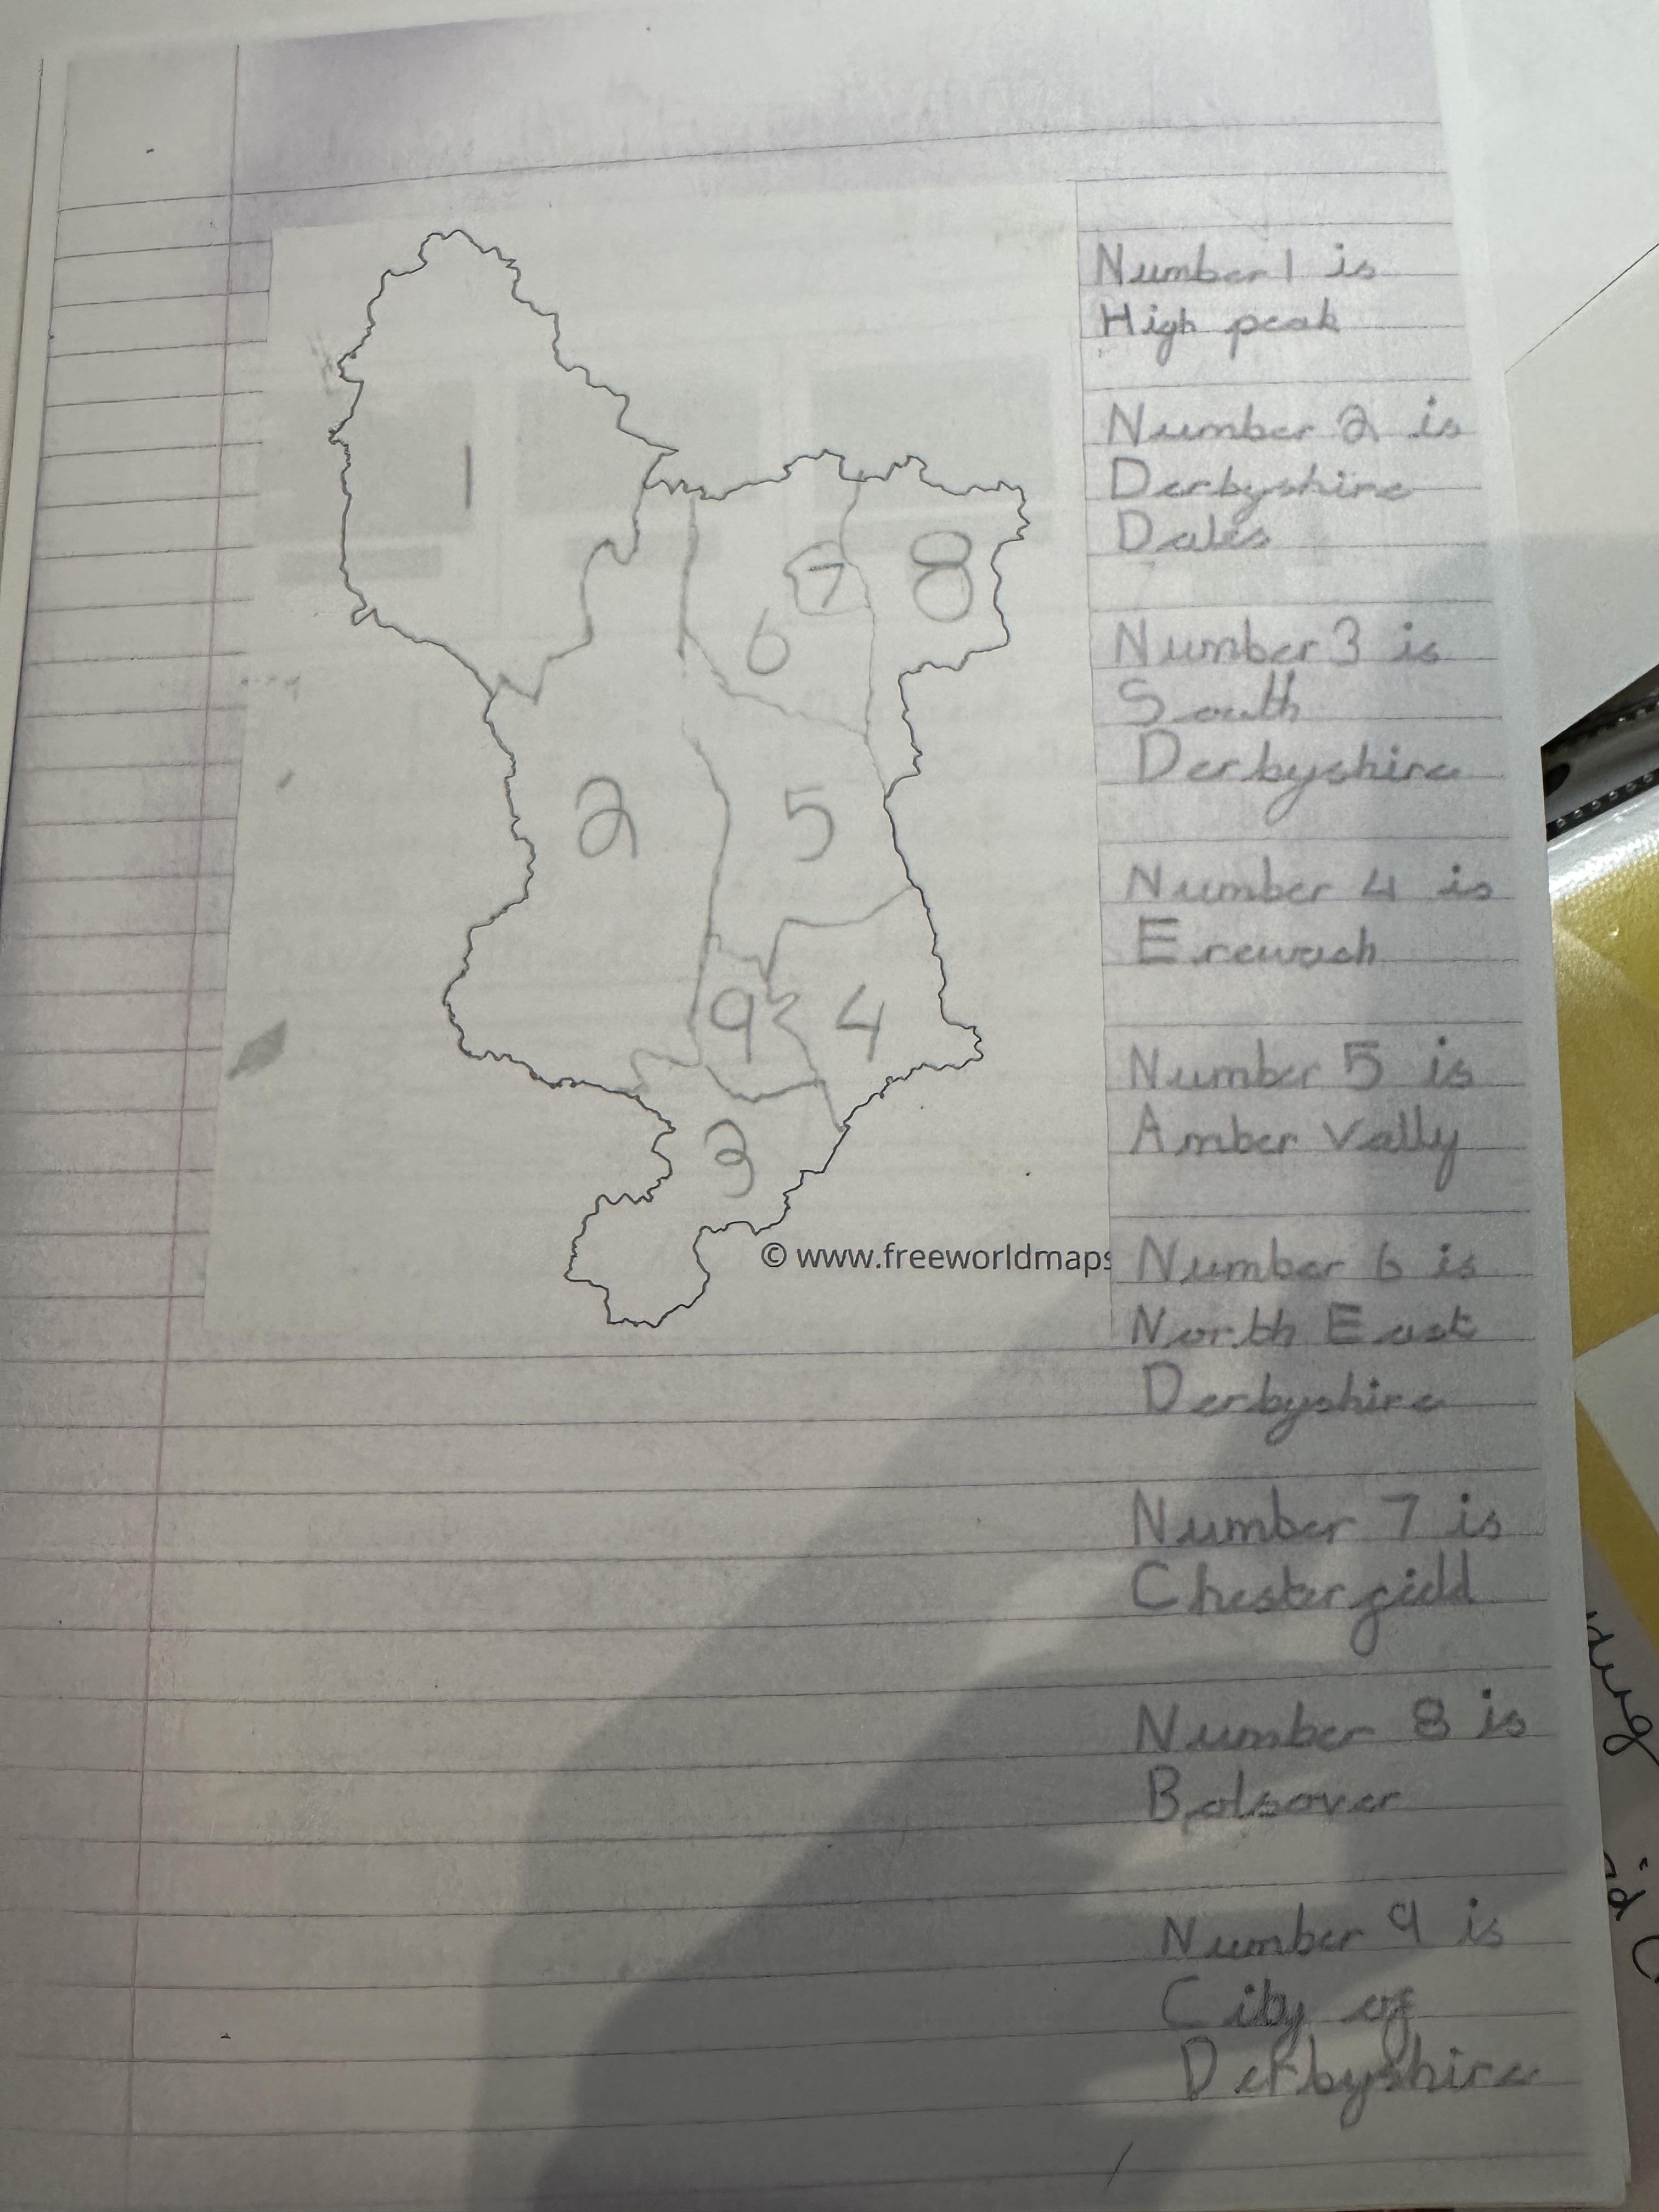 Number 1 is
High peak
Number 2 is
Derbyshire
Dales
Number 3 is
South
Derbyshire
Number 4 is
Erewash
Number 5 is
Amber Vally
Number 6 is
North East
Derbyshire
Number 7 is
Chesterfield
Number 8 is
Bolsover
Number 9 is
City of
Derbyshire
1
8
7
6
2
5
9
4
3
© www.freeworldmaps